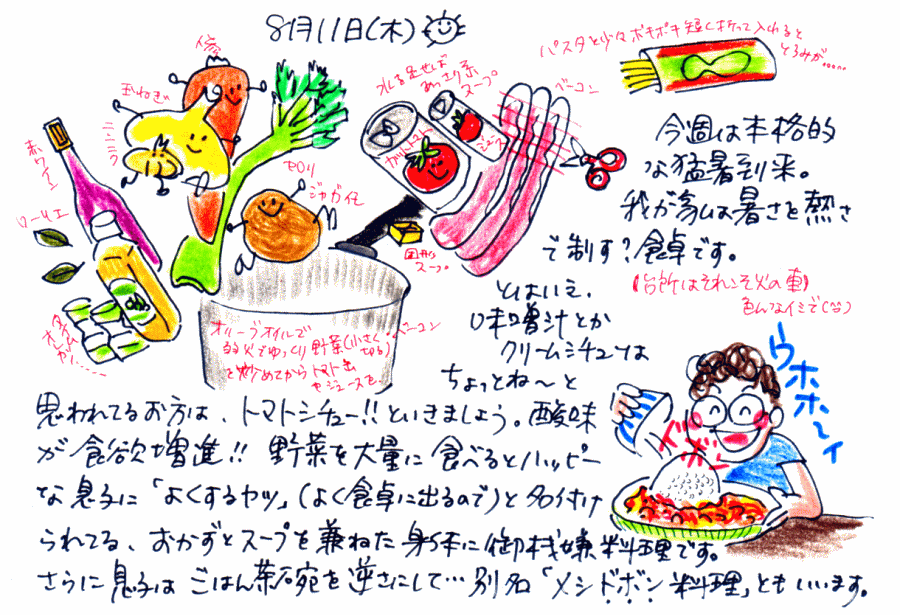 8月11日(木)
パスタを少々ポキポキ短く折って入れると
とろみが.....
人参
玉ねぎ
ニンニク
赤ワイン
ローリエ
セロリ
ジャガ化
水を足せば
あっさり系
スープ
カットトマト
ジュース
ベーコン
固形
スープ
オリーブオイルで
弱火でゆっくり野菜(小さく切る)ベーコン
を炒めてからトマト缶
やジュースを
今週は本格的
な猛暑到来。
我が家は暑さを熱さ
で制す?食卓です。
(台所はそれこそ火の車)
色んなイミで(笑)
とはいえ、
味噌汁とか
クリームシチューは
ちょっとね〜と
思われてるお方は、トマトシチュー!!といきましょう。酸味
が食欲増進!!野菜を大量に食べるとハッピー
な息子に「よくするヤツ」(よく食卓に出るので)と名付け
られてる、おかずとスープを兼ねた身体に御機嫌料理です。
さらに息子はごはん茶碗を逆さにして…別名「メシドボン料理」ともいいます。
ウホホーイ
ドボン